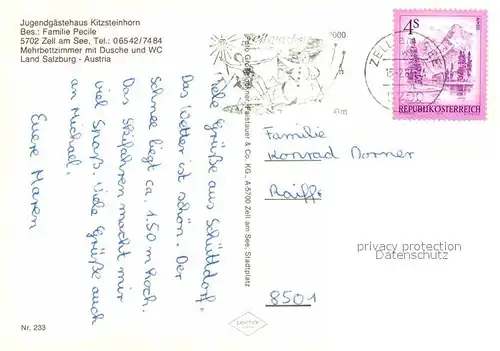 Jugendgästehaus Kitzsteinhorn
Bes.: Familie Pecile
5702 Zell am See, Tel.: 06542/7484
Mehrbettzimmer mit Dusche und WC
Land Salzburg - Austria
Viele Grüße aus Schüttdorf.
Das Wetter ist schön. Der
Schnee liegt ca. 1.50 m hoch.
Das Skifahren macht mir
viel Spaß. Viele Grüße auch
an Michael.
Eure Maren
Nr. 233
& Co. KG., A-5700 Zell am See, Stadtplatz
2000
ZELL AM SEE
4S
REPUBLIK ÖSTERREICH
Familie
Konrad Dorner
Raiff
8501
privacy protection
Datenschutz